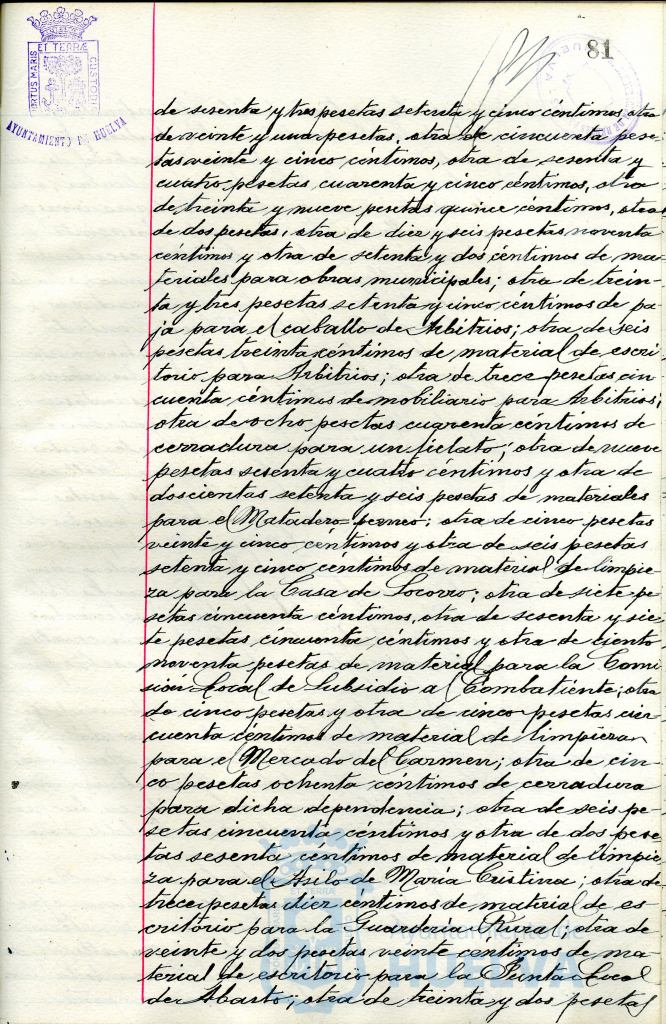 81
ET TERRÆ
CUSTODI
AYUNTAMIENTO DE HUELVA
de sesenta y tres pesetas setenta y cinco céntimos, otra
de veinte y una pesetas, otra de cincuenta pese-
tas veinte y cinco céntimos, otra de sesenta y
cuatro pesetas cuarenta y cinco céntimos, otra
de treinta y nueve pesetas quince céntimos, otra
de dos pesetas, otra de diez y seis pesetas noventa
céntimos y otra de setenta y dos céntimos de ma-
teriales para obras municipales; otra de trein-
ta y tres pesetas setenta y cinco céntimos de pa-
ja para el caballo de Arbitrios; otra de seis
pesetas treinta céntimos de material de escri-
torio para Arbitrios; otra de trece pesetas cin-
cuenta céntimos de mobiliario para Arbitrios;
otra de ocho pesetas cuarenta céntimos de
cerradura para un fielato; otra de nueve
pesetas sesenta y cuatro céntimos y otra de
doscientas setenta y seis pesetas de materiales
para el Matadero=perneo; otra de cinco pesetas
veinte y cinco céntimos y otra de seis pesetas
setenta y cinco céntimos de material de limpie-
za para la Casa de Socorro; otra de siete pe-
setas cincuenta céntimos, otra de sesenta y sie-
te pesetas, cincuenta céntimos y otra de ciento
noventa pesetas de material para la Comi-
sión Local de Subsidio al Combatiente; otra
de cinco pesetas y otra de cinco pesetas cin-
cuenta céntimos de material de limpieza
para el Mercado del Carmen; otra de cin-
co pesetas ochenta céntimos de cerradura
para dicha dependencia; otra de seis pe-
setas cincuenta céntimos y otra de dos pese-
tas sesenta céntimos de material de limpie-
za para el Asilo de María Cristina; otra de
trece pesetas diez céntimos de material de es-
critorio para la Guardería Rural; otra de
veinte y dos pesetas veinte céntimos de ma-
terial de escritorio para la Junta Local
de Abasto; otra de treinta y dos pesetas
Ayuntamiento de
HUELVA